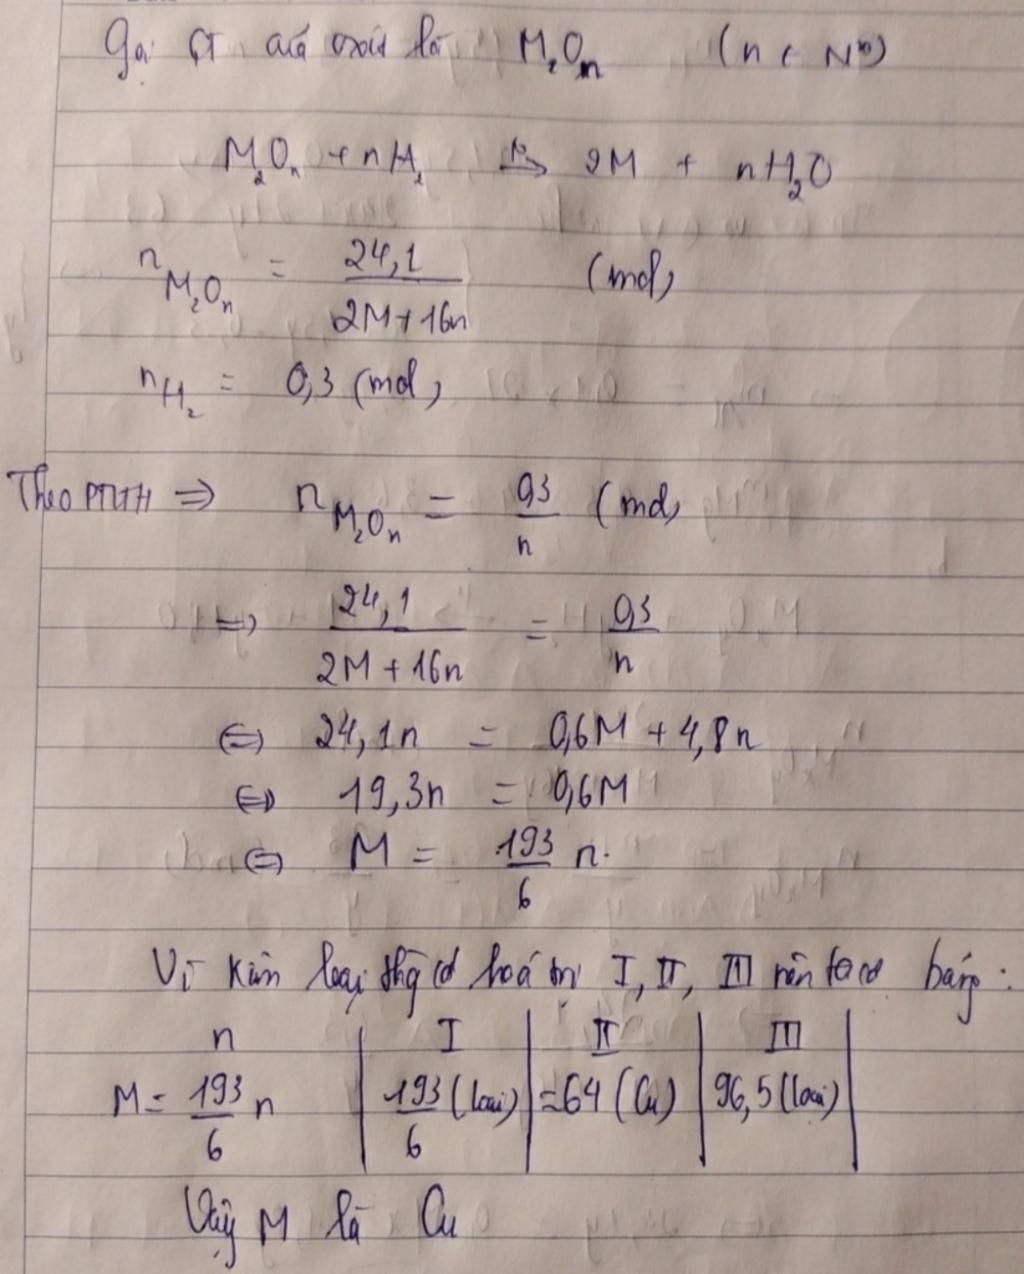 Gọi CT của oxit là M₂Oₙ (n ∈ N*)
M₂Oₙ + nH₂ →(t°) 2M + nH₂O
n M₂Oₙ = 24,1 / (2M + 16n) (mol)
n H₂ = 0,3 (mol)
Theo PTHH ⇒ n M₂Oₙ = 0,3 / n (mol)
⇒ 24,1 / (2M + 16n) = 0,3 / n
⇔ 24,1n = 0,6M + 4,8n
⇔ 19,3n = 0,6M
⇔ M = 193/6 n.
Vì kim loại thg có hoá trị I, II, III nên ta có bảng :
n | I | II | III |
M = 193/6 n | 193/6 (loại) | ≈64 (Cu) | 96,5 (loại) |
Vậy M là Cu